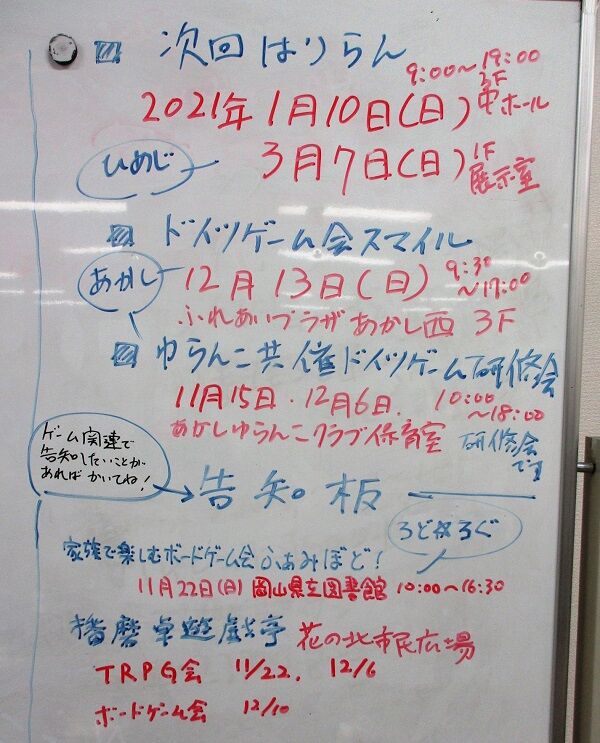 次回はりらん
9:00～19:00
2021年1月10日(日)
3F
中ホール
ひめじ
3月7日(日)
1F
展示室
ドイツゲーム会スマイル
あかし
12月13日(日)
9:30
～17:00
ふれあいプラザあかし西 3F
ゆらんこ共催ドイツゲーム研修会
11月15日・12月6日.
10:00
～18:00
あかしゆらんこクラブ保育室
研修会
です
ゲーム関連で
告知したいことが
あれば かいてね!
告知板
ろど☆ろぐ
家族で楽しむボードゲーム会 ふぁみぼど!
11月22日(日) 岡山県立図書館 10:00～16:30
播磨卓遊戯亭 花の北市民広場
TRPG会 11/22. 12/6
ボードゲーム会 12/10